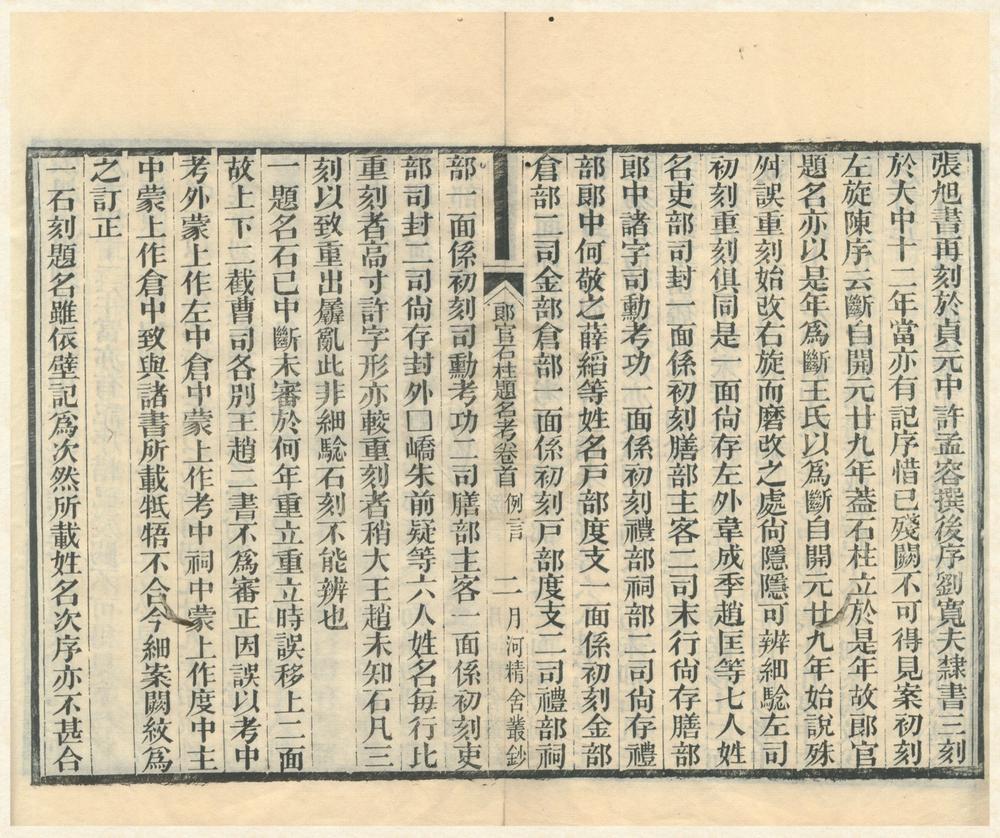 張旭書再刻於貞元中許孟容撰後序劉寬夫隸書三刻
於大中十二年當亦有記序惜已殘闕不可得見案初刻
左旋陳序云斷自開元廿九年葢石柱立於是年故郎官
題名亦以是年爲斷王氏以爲斷自開元廿九年始說殊
舛誤重刻始改右旋而磨改之處尙隱隱可辨細驗左司
初刻重刻俱同是一面尙存左外韋成季趙匡等七人姓
名吏部司封一面係初刻膳部主客二司末行尙存膳部
郎中諸字司勳考功一面係初刻禮部祠部二司尙存禮
部郎中何敬之薛縚等姓名戸部度支一面係初刻金部
倉部二司金部倉部一面係初刻戸部度支二司禮部祠
郎官石柱題名考卷首 例言 二 月河精舍叢鈔
部一面係初刻司勳考功二司膳部主客一面係初刻吏
部司封二司尙存封外囗嶠朱前疑等六人姓名每行比
重刻者高寸許字形亦較重刻者稍大王趙未知石凡三
刻以致重出羼亂此非細驗石刻不能辨也
一題名石已中斷未審於何年重立重立時誤移上二面
故上下二截曹司各別王趙二書不爲審正因誤以考中
考外蒙上作左中倉中蒙上作考中祠中蒙上作度中主
中蒙上作倉中致與諸書所載牴牾不合今細案闕紋爲
之訂正
一石刻題名雖依壁記爲次然所載姓名次序亦不甚合